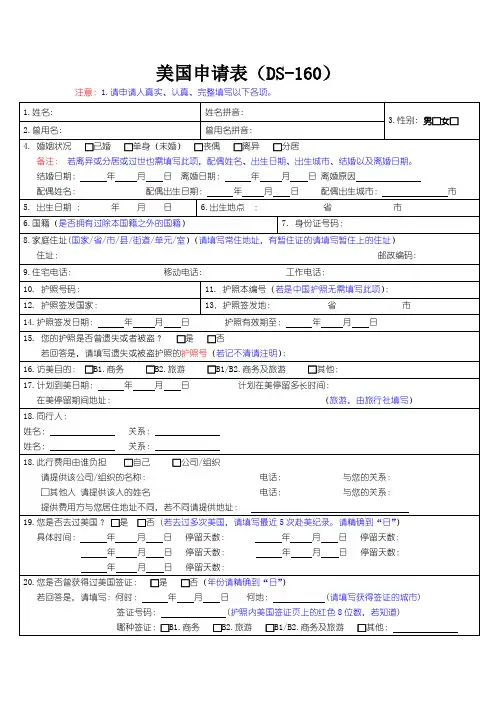 美国申请表（DS-160）
注意：1.请申请人真实、认真、完整填写以下各项。
1.姓名： 姓名拼音： 3.性别：男□女□
2.曾用名： 曾用名拼音：
4. 婚姻状况 □已婚 □单身（未婚） □丧偶 □离异 □分居
备注： 若离异或分居或过世也需填写此项，配偶姓名、出生日期、出生城市、结婚以及离婚日期。
结婚日期： 年 月 日 离婚日期： 年 月 日 离婚原因
配偶姓名： 配偶出生日期： 年 月 日 配偶出生城市： 市
5. 出生日期 ： 年 月 日 6.出生地点 ： 省 市
6.国籍（是否拥有过除本国籍之外的国籍） 7. 身份证号码：
8.家庭住址(国家/省/市/县/街道/单元/室)（请填写常住地址，有暂住证的请填写暂住上的住址）
住址： 邮政编码：
9.住宅电话： 移动电话： 工作电话：
10. 护照号码： 11. 护照本编号（若是中国护照无需填写此项）：
12. 护照签发国家： 13. 护照签发地： 省 市
14.护照签发日期： 年 月 日 护照有效期至： 年 月 日
15. 您的护照是否曾遗失或者被盗？ □是 □否
若回答是，请填写遗失或被盗护照的护照号（若记不清请注明）：
16.访美目的：□B1.商务 □B2.旅游 □B1/B2.商务及旅游 □其他：
17.计划到美日期： 年 月 日 计划在美停留多长时间：
在美停留期间地址： （旅游，由旅行社填写）
18.同行人：
姓名： 关系：
姓名： 关系：
18.此行费用由谁负担 □自己 □公司/组织
请提供该公司/组织的名称： 电话： 与您的关系：
□其他人 请提供该人的姓名 电话： 与您的关系：
提供费用方与您居住地址不同，若不同请提供地址：
19.您是否去过美国？□是 □否（若去过多次美国，请填写最近5次赴美纪录。请精确到“日”）
具体时间： 年 月 日 停留天数： 年 月 日 停留天数：
年 月 日 停留天数： 年 月 日 停留天数：
年 月 日 停留天数：
20.您是否曾获得过美国签证： □是 □否（年份请精确到“日”）
若回答是，请填写：何时： 年 月 日 何地： （请填写获得签证的城市)
签证号码： (护照内美国签证页上的红色8位数，若知道)
哪种签证：□B1.商务 □B2.旅游 □B1/B2.商务及旅游 □其他：